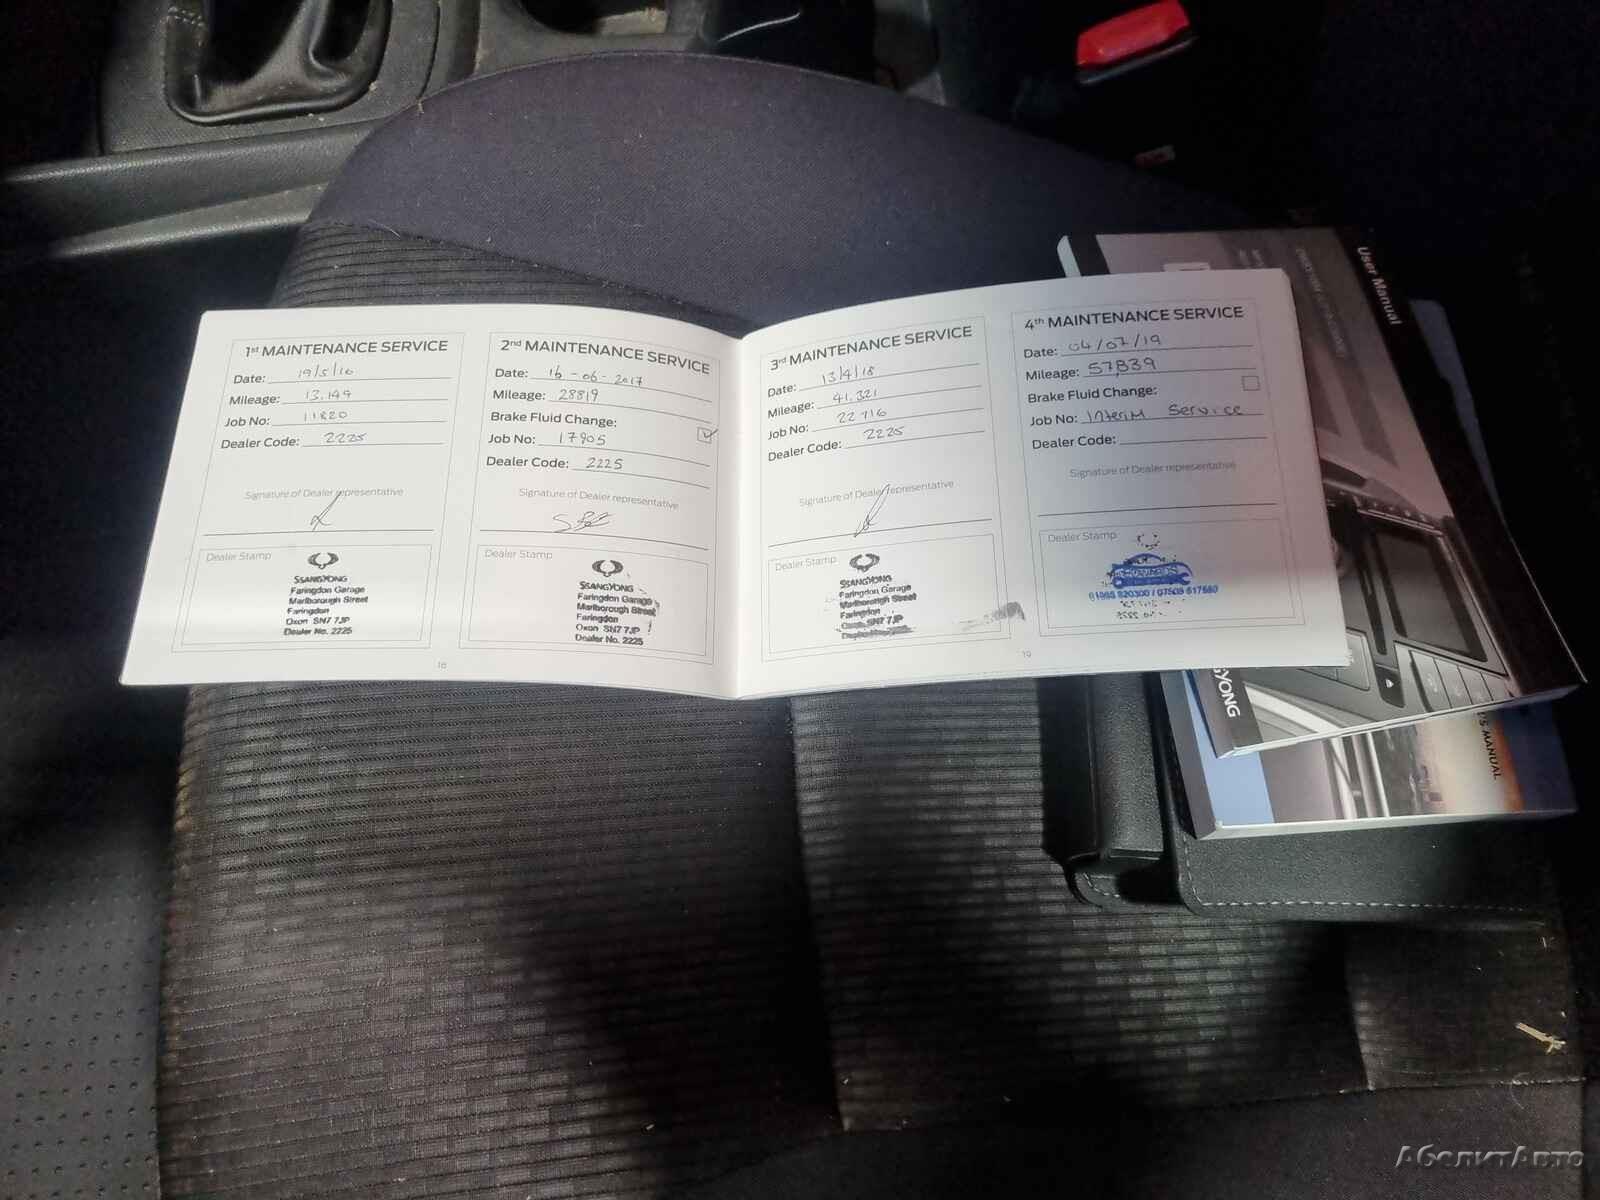 1st MAINTENANCE SERVICE
Date: 19/5/16
Mileage: 13,149
Job No: 11820
Dealer Code: 2225
Signature of Dealer representative
Dealer Stamp
SSANGYONG
Faringdon Garage
Marlborough Street
Faringdon
Oxon SN7 7JP
Dealer No. 2225
18
2nd MAINTENANCE SERVICE
Date: 16-06-2017
Mileage: 28819
Brake Fluid Change:
Job No: 17905
Dealer Code: 2225
Signature of Dealer representative
Dealer Stamp
SSANGYONG
Faringdon Garage
Marlborough Street
Faringdon
Oxon SN7 7JP
Dealer No. 2225
3rd MAINTENANCE SERVICE
Date: 13/4/18
Mileage: 41,321
Job No: 22716
Dealer Code: 2225
Signature of Dealer representative
Dealer Stamp
SSANGYONG
Faringdon Garage
Marlborough Street
Faringdon
Oxon SN7 7JP
19
4th MAINTENANCE SERVICE
Date: 04/07/19
Mileage: 57,839
Brake Fluid Change:
Job No: Interim Service
Dealer Code:
Signature of Dealer representative
Dealer Stamp
User Manual
GYONG
MANUAL
АболитАвто